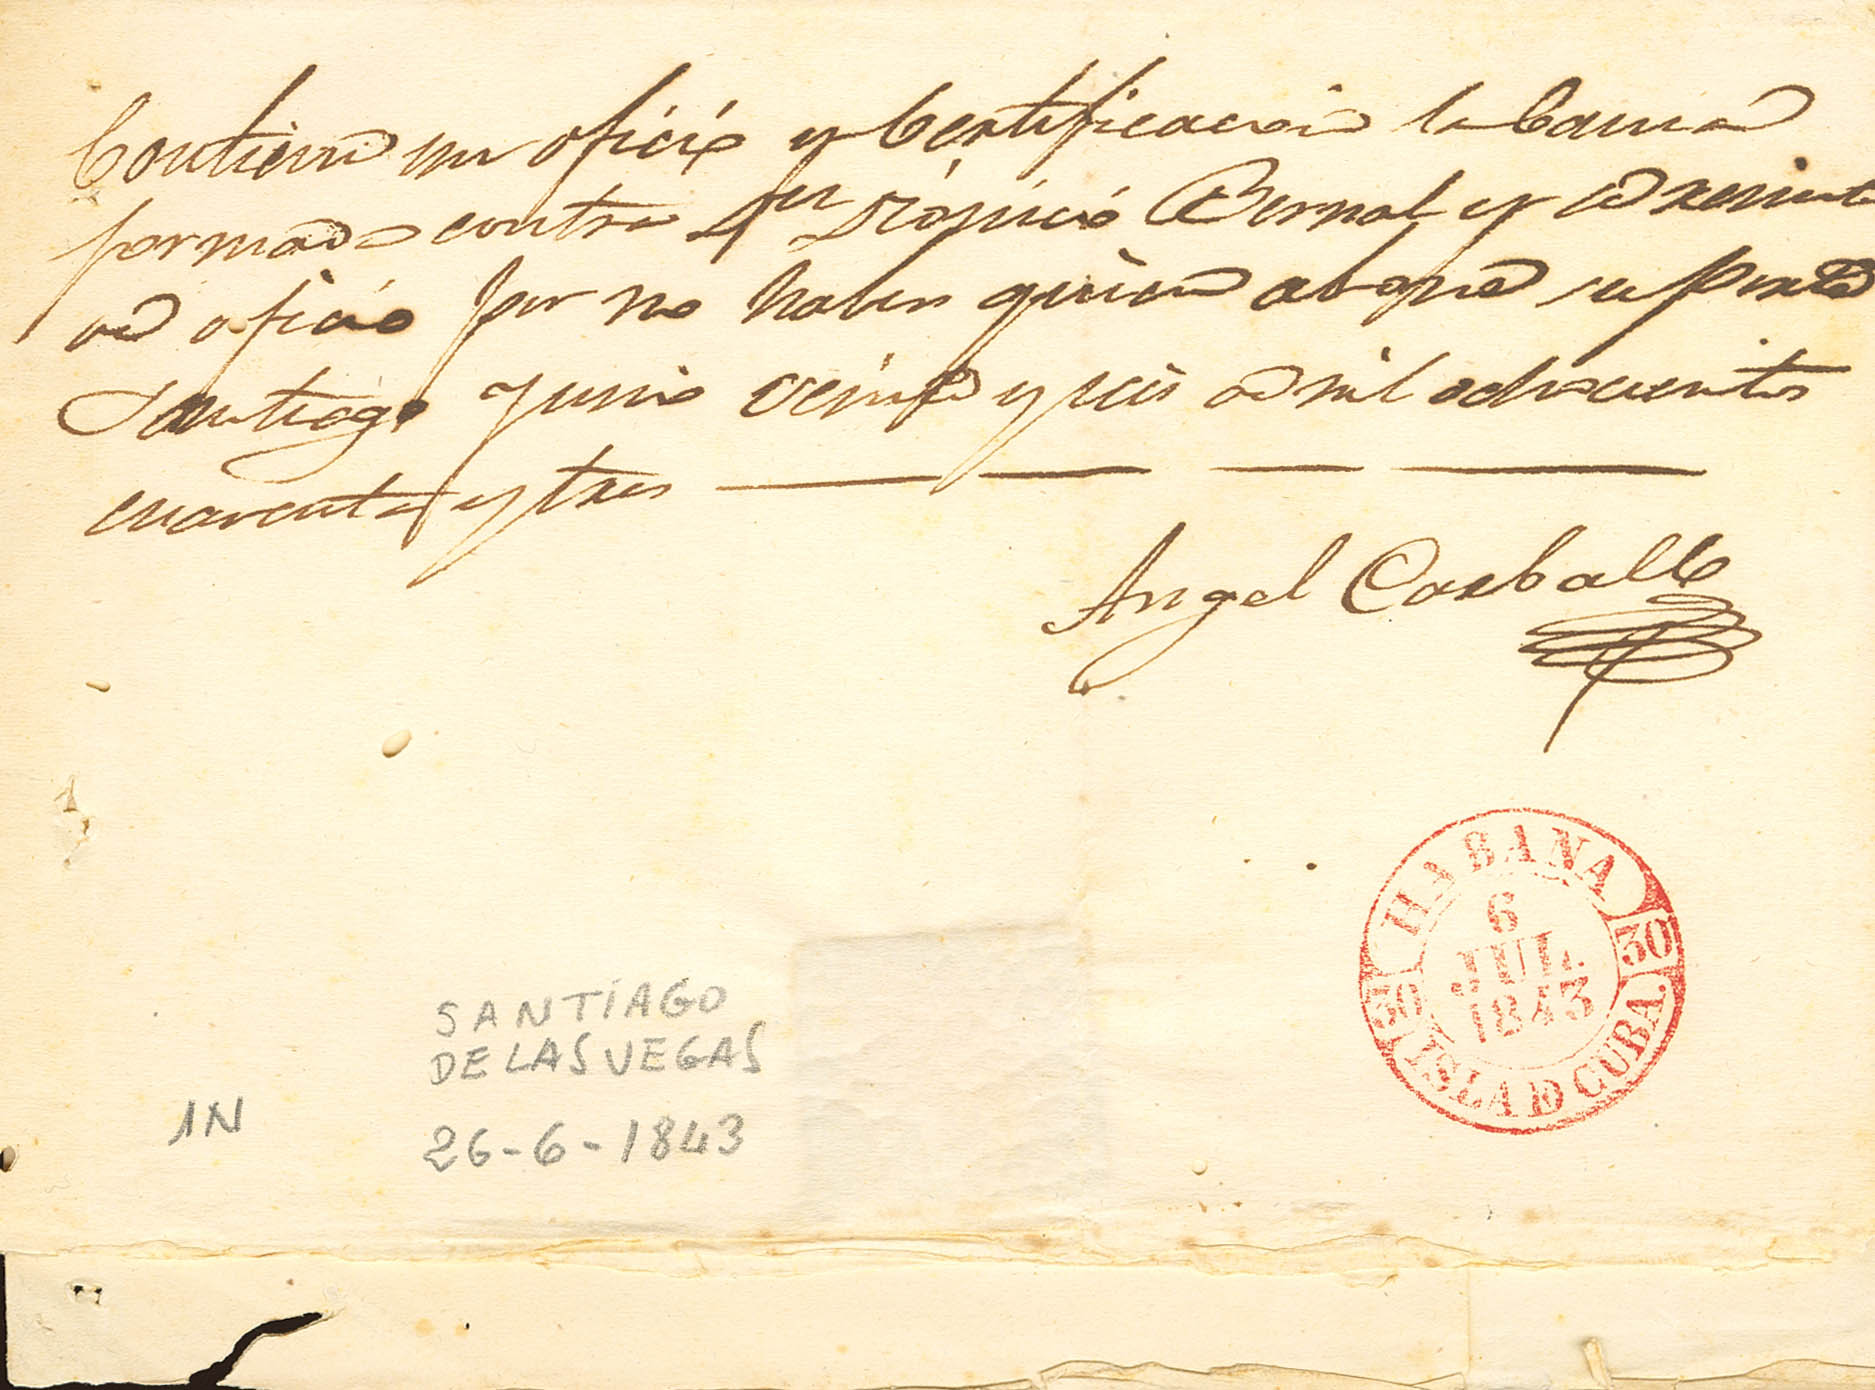 Contiene un oficio y Certificacion la Causa
formada contra Dionicio Bernal y se remite
de oficio por no haber quien abone su Porte
Santiago Junio veinte y seis de mil ochocientos
cuarenta y tres
Angel Carballo
HABANA
6
JUL.
1843
30
30
ISLA DE CUBA.
SANTIAGO
DE LAS VEGAS
26-6-1843
1N